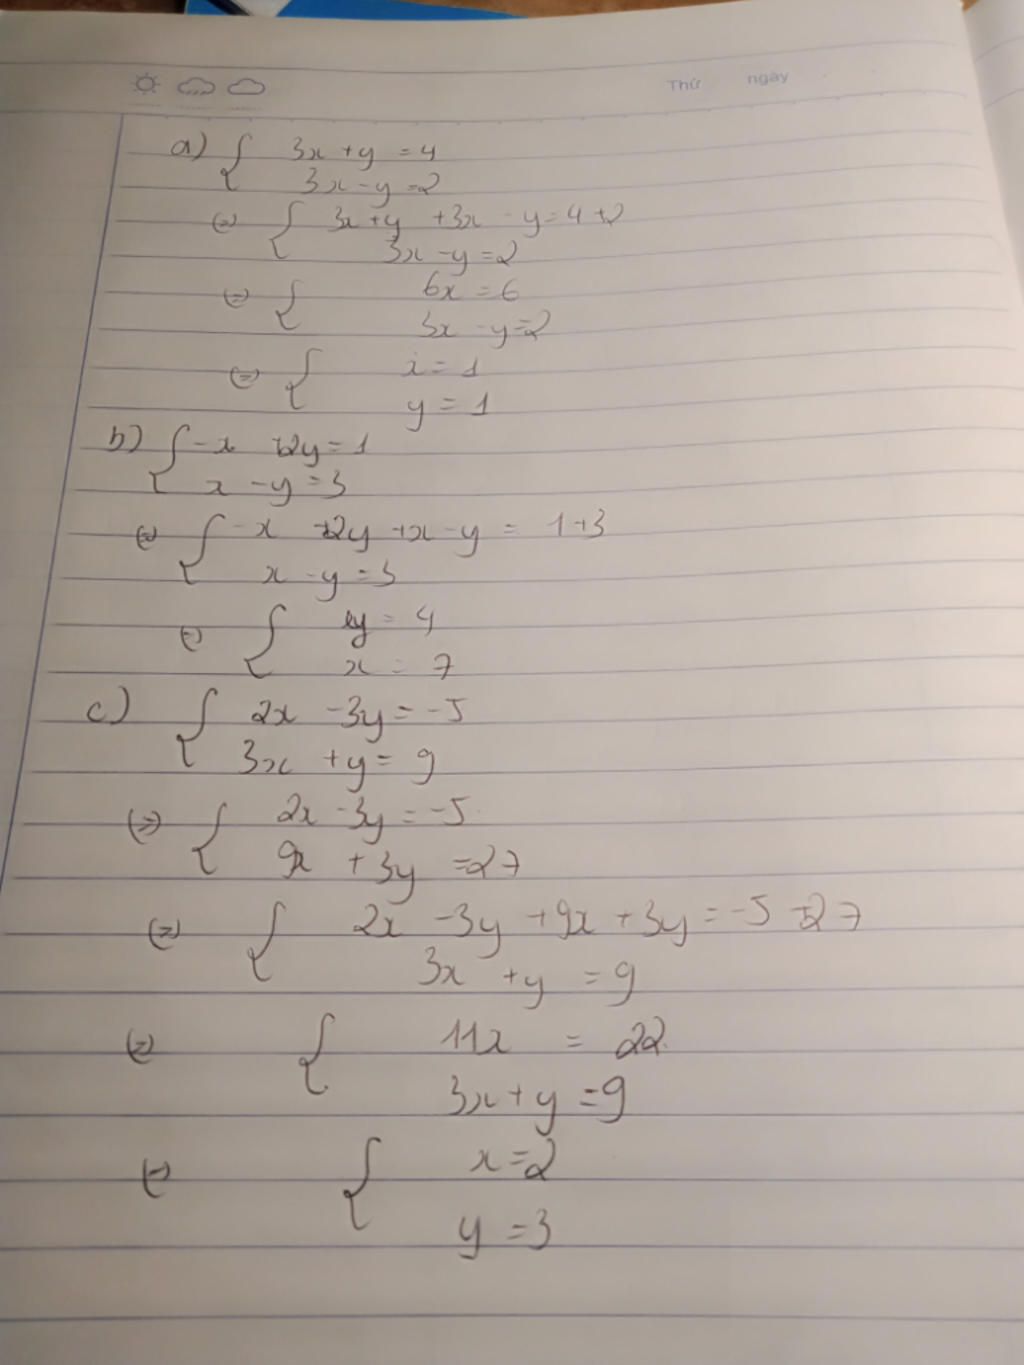 Thứ ngày
a) { 3x + y = 4
3x - y = 2
(=) { 3x + y + 3x - y = 4 + 2
3x - y = 2
(=) { 6x = 6
3x - y = 2
(=) { x = 1
y = 1
b) { -x + 2y = 1
x - y = 3
(=) { -x + 2y + x - y = 1 + 3
x - y = 3
(=) { y = 4
x = 7
c) { 2x - 3y = -5
3x + y = 9
(=) { 2x - 3y = -5
9x + 3y = 27
(=) { 2x - 3y + 9x + 3y = -5 + 27
3x + y = 9
(=) { 11x = 22
3x + y = 9
(=) { x = 2
y = 3